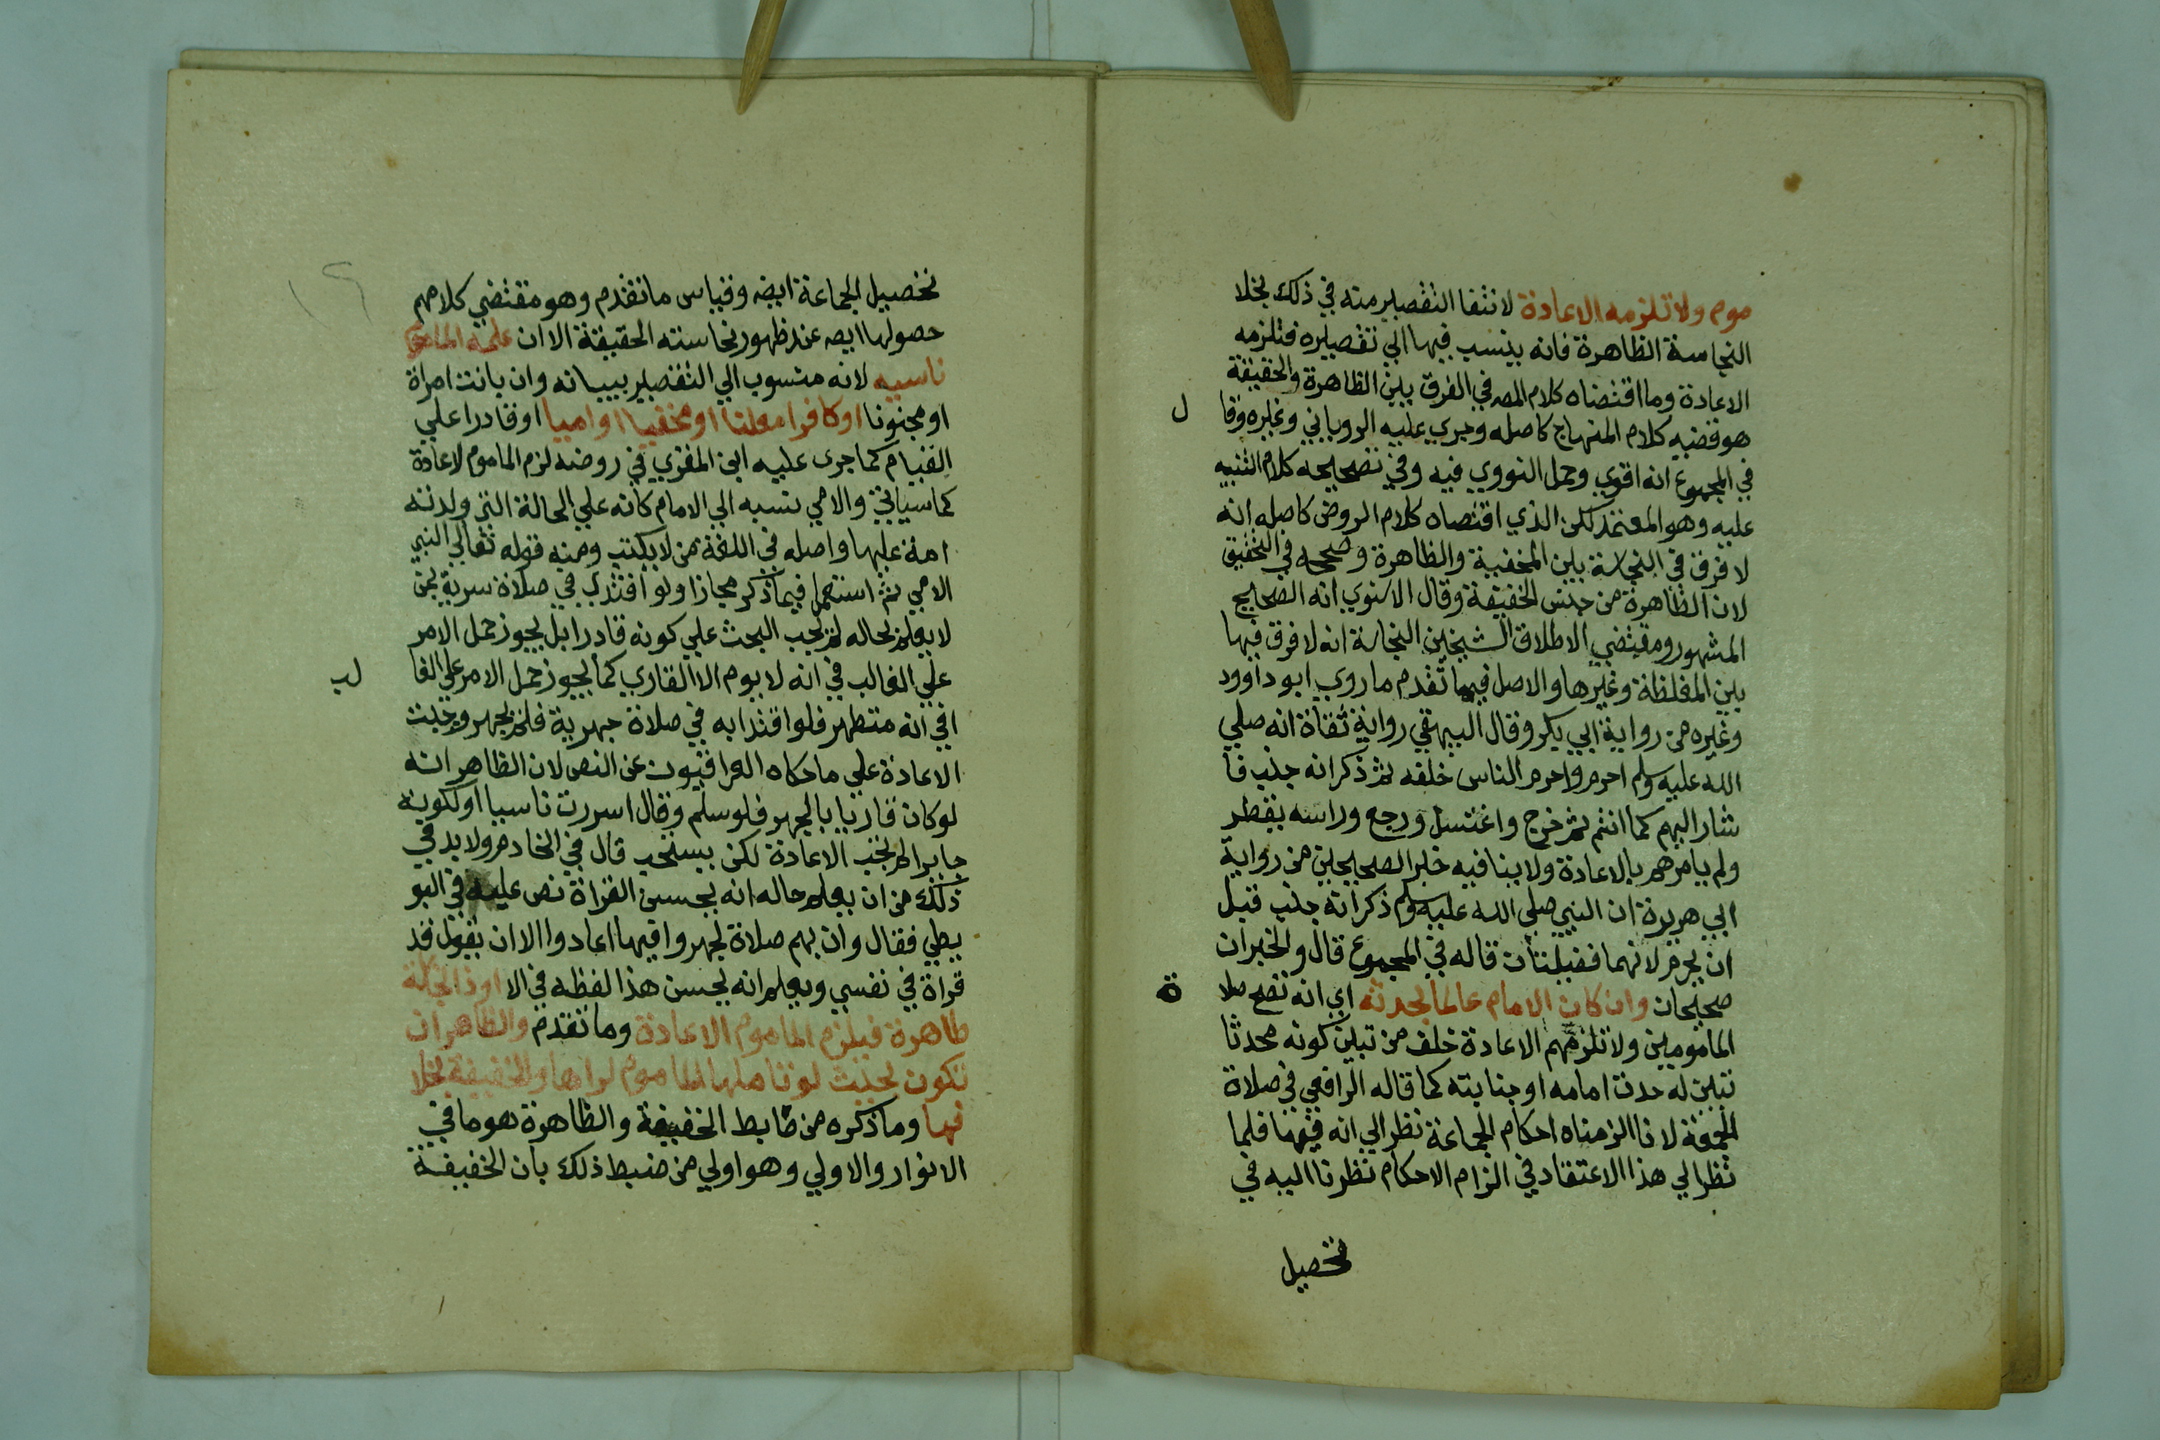 موم ولا تلزمه الاعادة لانتفا التقصير منه في ذلك بخلا
النجاسة الظاهرة فانه ينسب فيها الي تقصيره فتلزمه
الاعادة وما اقتضاه كلام المصـ في الفرق بين الظاهرة والخفيفة
هو قضيه كلام المنهاج كاصله وجري عليه الروياني وغيره وقا
ل
في المجموع انه اقوي وحمل النووي فيه وفي تصحيحه كلام التنبيه
عليه وهو المعتمد لكن الذي اقتضاه كلام الروض كاصله انه
لا فرق في النجاسة بين المخفية والظاهرة وصححه في التحقيق
لان الظاهرة من جنس الخفيفة وقال الاسنوي انه الصحيح
المشهور ومقتضي الاطلاق الشيخين النجاسة انه لا فرق فيها
بين المغلظة وغيرها والاصل فيما تقدم ما روي ابو داوود
وغيره من رواية ابي بكر وقال البيهقي رواية ثقاة انه صلي
الله عليه وسلم احرم واحرم الناس خلفه ثم ذكر انه جنب فا
شار اليهم كما انتم ثم خرج واغتسل ورجع وراسه يقطر
ولم يامرهم بالاعادة ولا ينافيه خبر الصحيحين من رواية
ابي هريرة ان النبي صلى الله عليه وسلم ذكر انه جنب قبل
ان يحرم لانهما فقيلتان قاله في المجموع قال والخبران
صحيحان وان كان الامام عالما بحدثه اي انه تصح صلا
ة
المامومين ولا تلزمهم الاعادة خلف من تبين كونه محدثا
تبين له حدث امامه او جنابته كما قاله الرافعي في صلاة
الجمعة لانا الزمناه احكام الجماعة نظرا الي انه فيهنا فلما
نظرا لي هذا الاعتقاد في الزام الاحكام نظرنا اليه في
تحصيل
تحصيل الجماعة ايضـ وقياس ما تقدم وهو مقتضي كلامهم
حصولها ايصـ عند ظهور نجاسته الحقيقة الا ان علمه الماموم
ناسيه لانه منسوب الي التقصير بنسيانه وان بانت امراة
او مجنونا او كافرا معلنا او مخفيا او اميا او قادرا علي
القيام كما جرى عليه ابن المقري في روضه لزم الماموم لاعادة
كما سياتي والامي نسبه الي الامام كانه علي الحالة التي ولدته
امه عليها واصله في اللغة من لا يكتب ومنه قوله تعالي النبي
الامي ثم استعمل فيما ذكر مجازا ولو اقتدي في صلاة سرية بمن
لا يعلم حاله لم يجب البحث علي كونه قادرا بل يجوز حمل الامر
علي الغالب في انه لا يوم الا القاري كما يجوز حمل الامر علي الغا
لب
افي انه متطهر فلو اقتدا به في صلاة جهرية فلم يجهر وجبت
الاعادة علي ما حكاه العراقيون عن النص لان الظاهر انه
لو كان قاريا بالجهر فلو سلم وقال اسررت ناسيا او لكونه
جايزا لم يجب الاعادة لكن يستحب قال في الخادم ولا بد في
ذلك من ان يعلم حاله انه يحسن القراة نص عليه في البو
يطي فقال وان بهم صلاة يجهروا فيها اعادوا الا ان يقول قد
قراة في نفسي ويعلم انه يحسن هذا لفظه في الا او ذا نجاسة
ظاهرة فيلزم الماموم الاعادة وما تقدم والظاهر ان
تكون بحيث لو تاملها الماموم لراها والخفيفة بخلا
فها وما ذكره من ضابط الخفيفة والظاهرة هو ما في
الانوار والاولي وهو اولي من ضبط ذلك بان الخفيفة